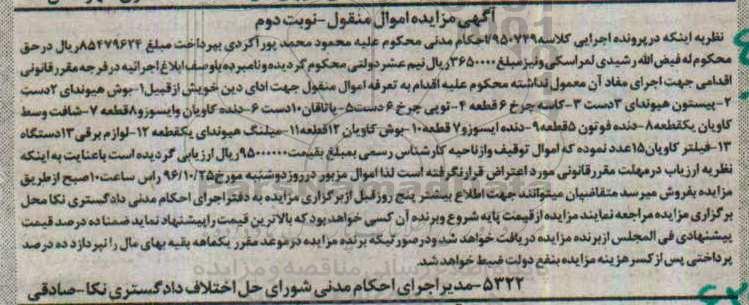 آگهی مزایده اموال منقول - نوبت دوم
نظربه اینکه در پرونده اجرایی کلاسه ۹۵۰۷۴۹/احکام مدنی محکوم علیه محمود محمد پور آکردی بپرداخت مبلغ ۸۵۴۷۹۶۳۴ریال در حق
محکوم له فیض الله رشیدی لمراسکی ونیز مبلغ ۳۶۵۰۰۰۰ریال نیم عشر دولتی محکوم گردیده ونامبرده باوصف ابلاغ اجرائیه در فرجه مقرر قانونی
اقدامی جهت اجرای مفاد آن معمول نداشته محکوم علیه اقدام به تعرفه اموال منقول جهت ادای دین خویش از قبیل۱-بوش هیوندای ۲دست
۲-پیستون هیوندای ۳دست ۳-کاسه چرخ ۶قطعه ۴-توپی چرخ ۶دست۵-یاتاقان۱۰دست ۶-دنده کاویان وایسوزو۸قطعه ۷-شافت وسط
کاویان یکقطعه۸-دنده فوتون ۵قطعه۹-دنده ایسوزو۷ قطعه۱۰-بوش کاویان ۱۲قطعه۱۱-میلنگ هیوندای یکقطعه ۱۲-لوازم برقی۱۳دستگاه
۱۳-فیلتر کاویان۱۵عدد نموده که اموال توقیف وازناحیه کارشناس رسمی بمبلغ بقیمت۹۵۰۰۰۰۰۰ریال ارزیابی گردیده است باعنایت به اینکه
نظریه ارزیاب درمهلت مقررقانونی مورداعتراض قرارنگرفته است لذا اموال مزبور درروزدوشنبه مورخ۹۶/۱۰/۲۵ راس ساعت۱۰صبح ازطریق
مزایده بفروش میرسد متقاضیان میتوانند جهت اطلاع بیشتر پنج روزقبل ازبرگزاری مزایده به دفتراجرای احکام مدنی دادگستری نکامحل
برگزاری مزایده مراجعه نمایند مزایده ازقیمت پایه شروع وبرنده آن کسی خواهدبود که بالاترین قیمت راپیشنهاد نماید ضمنا ده درصد قیمت
پیشنهادی فی المجلس ازبرنده مزایده دریافت خواهد شد ودر صورتیکه برنده مزایده درموعد مقرر یکماهه بقیه بهای مال را نپردازد ده درصد
پرداختی پس از کسر هزینه مزایده بنفع دولت ضبط خواهد شد
۵۳۲۲-مدیر اجرای احکام مدنی شورای حل اختلاف دادگستری نکا-صادقی